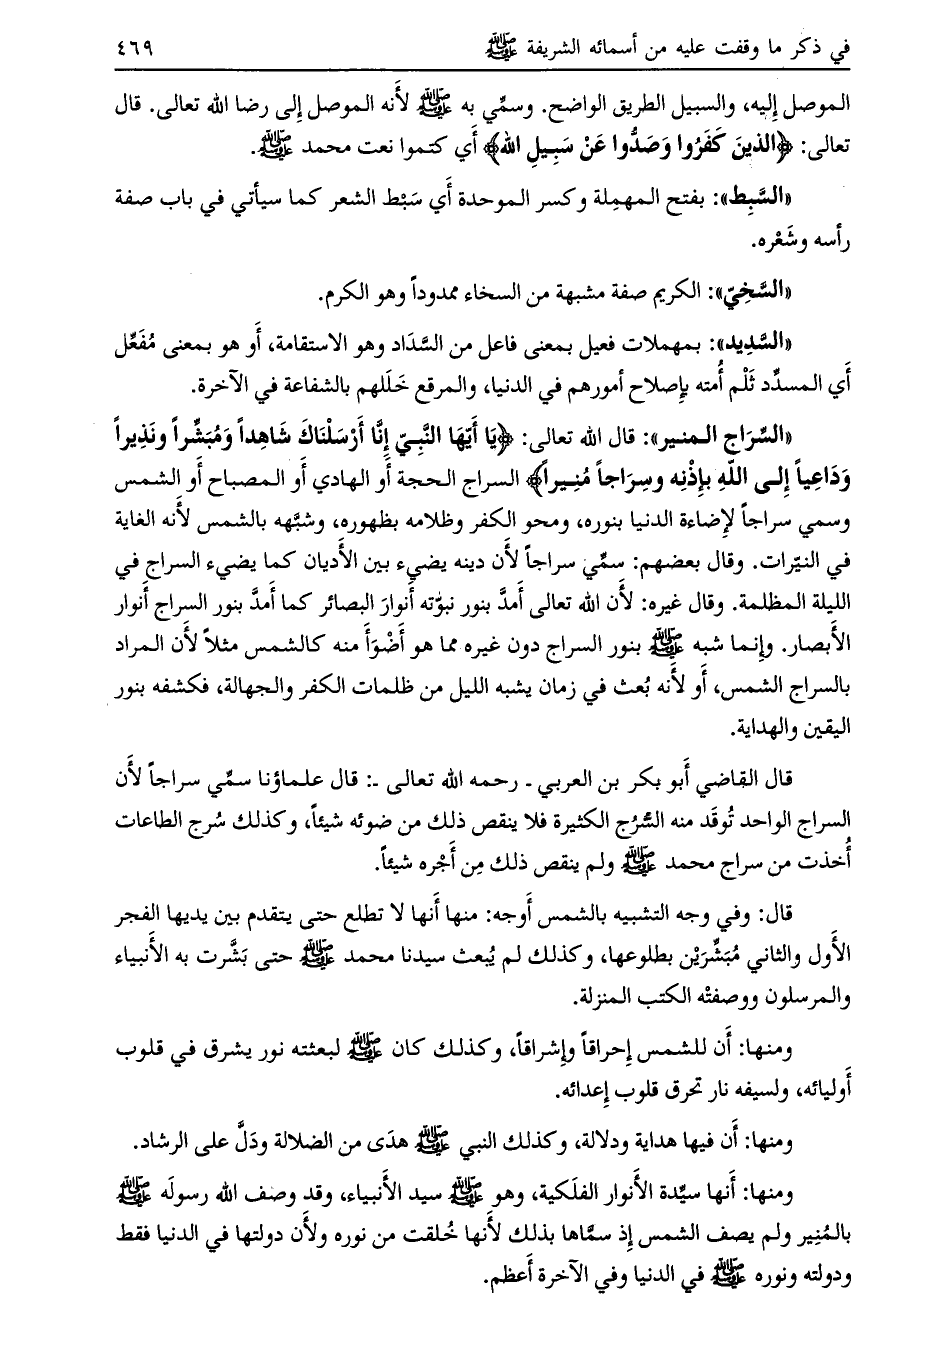 في ذكر ما وقفت عليه من أسمائه الشريفة ﷺ ٤٦٩
الموصل إليه، والسبيل الطريق الواضح. وسمِّي به ﷺ لأَنه الموصل إِلى رضا الله تعالى. قال
تعالى: ﴿الذينَ كَفَرُوا وَصَدُّوا عَنْ سَبِيلِ الله﴾ أَي كتموا نعت محمد ﷺ.
«السَّبِط»: بفتح المهملة وكسر الموحدة أَي سَبْط الشعر كما سيأتي في باب صفة
رأسه وشَعْره.
«السَّخِيّ»: الكريم صفة مشبهة من السخاء ممدوداً وهو الكرم.
«السَّدِيد»: بمهملات فعيل بمعنى فاعل من السَّدَاد وهو الاستقامة، أَو هو بمعنى مُفَعِّل
أَي المسدِّد ثَلْم أُمته بإِصلاح أمورهم في الدنيا، والمرقع خَلَلهم بالشفاعة في الآخرة.
«السِّرَاج المنير»: قال الله تعالى: ﴿يَا أَيّهَا النَّبِيّ إِنَّا أَرْسَلْنَاكَ شَاهِداً وَمُبَشِّراً ونَذِيراً
وَدَاعِياً إِلى اللّهِ بإِذْنِه وسِرَاجاً مُنِيراً﴾ السراج الحجة أَو الهادي أَو المصباح أَو الشمس
وسمي سراجاً لإِضاءة الدنيا بنوره، ومحو الكفر وظلامه بظهوره، وشبَّهه بالشمس لأَنه الغاية
في النيّرات. وقال بعضهم: سمِّي سراجاً لأَن دينه يضيء بين الأَديان كما يضيء السراج في
الليلة المظلمة. وقال غيره: لأَن الله تعالى أَمدَّ بنور نبوّته أَنوارَ البصائر كما أَمدَّ بنور السراج أَنوار
الأَبصار. وإِنما شبه ﷺ بنور السراج دون غيره مما هو أَضْوَأَ منه كالشمس مثلاً لأَن المراد
بالسراج الشمس، أَو لأَنه بُعث في زمان يشبه الليل من ظلمات الكفر والجهالة، فكشفه بنور
اليقين والهداية.
قال القاضي أَبو بكر بن العربي ـ رحمه الله تعالى ـ: قال علماؤنا سمِّي سراجاً لأَن
السراج الواحد تُوقَد منه السُّرُج الكثيرة فلا ينقص ذلك من ضوئه شيئاً، وكذلك سُرج الطاعات
أُخذت من سراج محمد ﷺ ولم ينقص ذلك مِن أَجْره شيئاً.
قال: وفي وجه التشبيه بالشمس أَوجه: منها أَنها لا تطلع حتى يتقدم بين يديها الفجر
الأَول والثاني مُبَشِّرَيْن بطلوعها، وكذلك لم يُبعث سيدنا محمد ﷺ حتى بَشَّرت به الأَنبياء
والمرسلون ووصفتْه الكتب المنزلة.
ومنها: أَن للشمس إِحراقاً وإِشراقاً، وكذلك كان ﷺ لبعثته نور يشرق في قلوب
أَوليائه، ولسيفه نار تحرق قلوب إِعدائه.
ومنها: أَن فيها هداية ودلالة، وكذلك النبي ﷺ هدَى من الضلالة ودَلَّ على الرشاد.
ومنها: أَنها سيِّدة الأَنوار الفلَكية، وهو ﷺ سيد الأَنبياء، وقد وصف الله رسولَه ﷺ
بالمُنِير ولم يصف الشمس إِذ سمَّاها بذلك لأَنها خُلقت من نوره ولأَن دولتها في الدنيا فقط
ودولته ونوره ﷺ في الدنيا وفي الآخرة أَعظم.